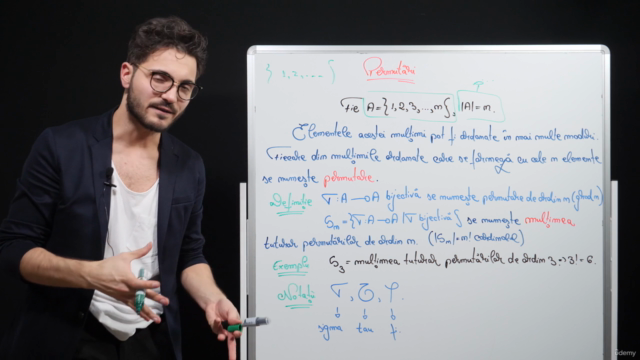 {1,2,....} Permutări
Fie A={1,2,3,...,n}, |A|=n.
Elementele acestei mulțimi pot fi ordonate în mai multe moduri.
Fiecare din mulțimile ordonate care se formează cu cele n elemente
se numește permutare.
Definiție σ:A→A bijectivă se numește permutare de ordin n (gradul n)
Sn={σ:A→A|σ bijectivă} se numește mulțimea
tuturor permutărilor de ordin n. (|Sn|=n!
Exemplu S3 = mulțimea tuturor permutărilor de ordin 3 => 3! = 6.
Notații σ, τ, φ.
sigma tau f
ûdemy